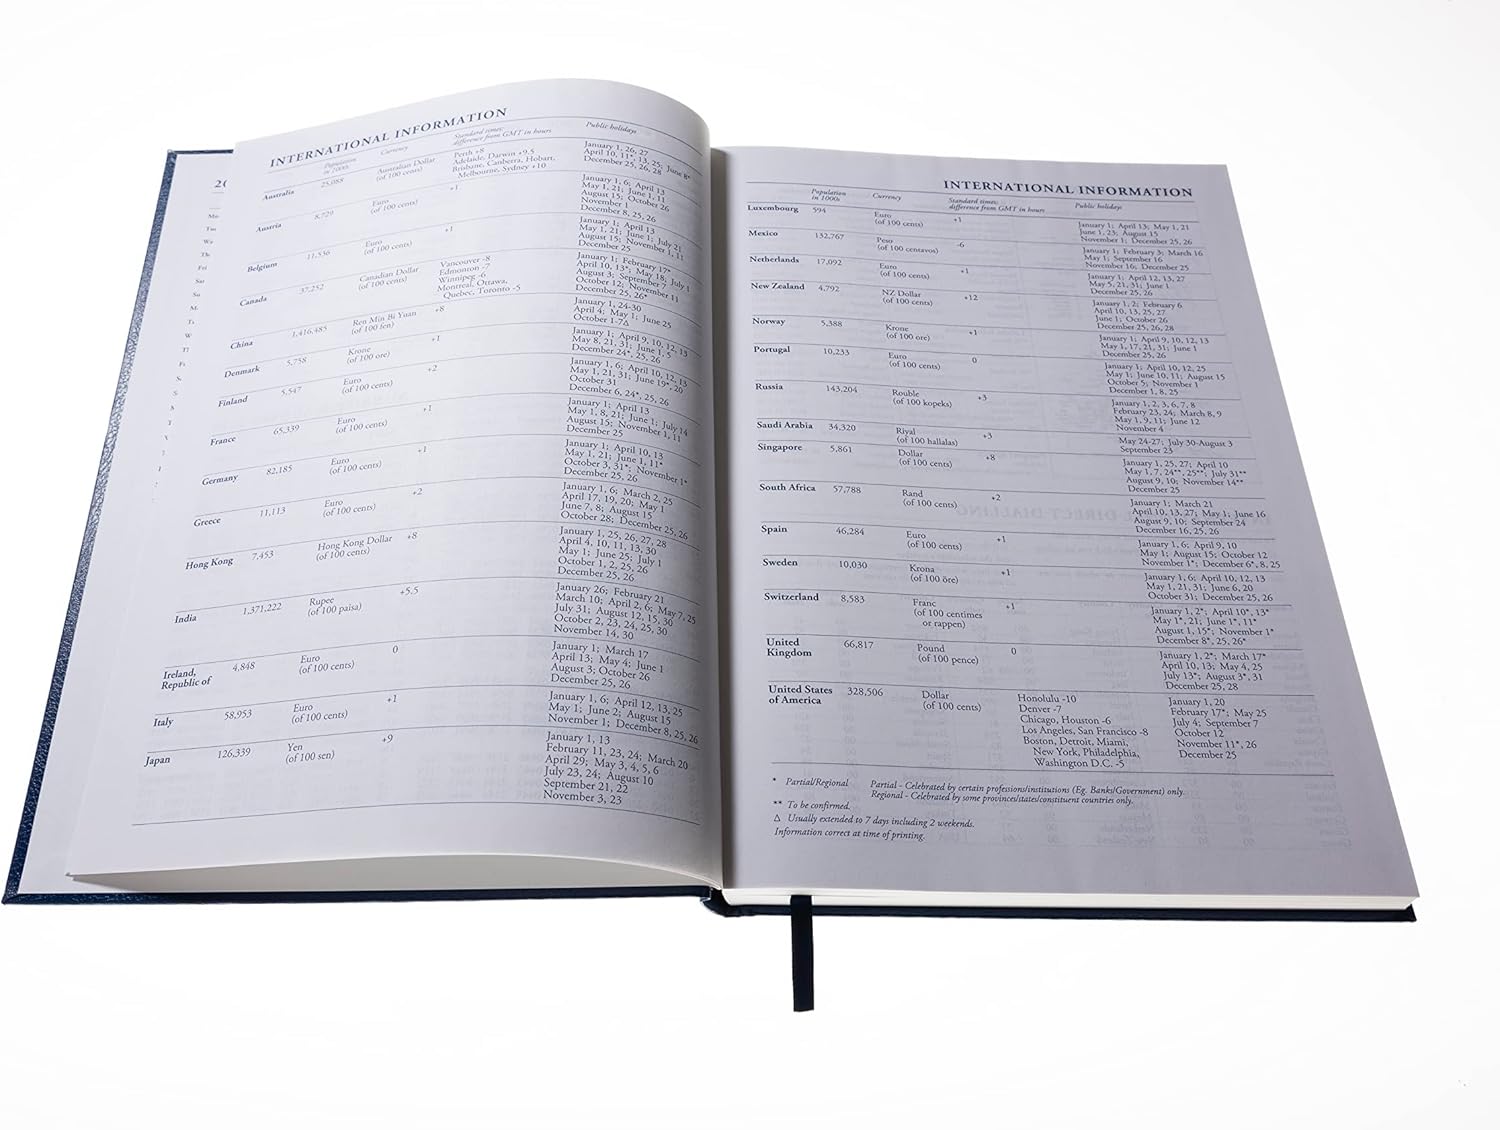 20
Mo
Tue
We
Th
Fri
Sat
Su
M
T
W
T
F
S
INTERNATIONAL INFORMATION
Population in 1000s
Currency
Standard times: difference from GMT in hours
Public holidays
Australia 25,088 Australian Dollar (of 100 cents)
Perth +8
Adelaide, Darwin +9.5
Brisbane, Canberra, Hobart,
Melbourne, Sydney +10
January 1, 26, 27
April 10, 11*, 13, 25; June 8*
December 25, 26, 28
Austria 8,729 Euro (of 100 cents) +1
January 1, 6; April 13
May 1, 21; June 1, 11
August 15; October 26
November 1
December 8, 25, 26
Belgium 11,536 Euro (of 100 cents) +1
January 1; April 13
May 1, 21; June 1; July 21
August 15; November 1, 11
December 25
Canada 37,252 Canadian Dollar (of 100 cents)
Vancouver -8
Edmonton -7
Winnipeg -6
Montreal, Ottawa,
Quebec, Toronto -5
January 1; February 17*
April 10, 13*; May 18; July 1
August 3; September 7
October 12; November 11
December 25, 26*
China 1,416,485 Ren Min Bi Yuan (of 100 fen) +8
January 1, 24-30
April 4; May 1; June 25
October 1-7Δ
Denmark 5,758 Krone (of 100 ore) +1
January 1; April 9, 10, 12, 13
May 8, 21, 31; June 1, 5
December 24*, 25, 26
Finland 5,547 Euro (of 100 cents) +2
January 1, 6; April 10, 12, 13
May 1, 21, 31; June 19*, 20
October 31
December 6, 24*, 25, 26
France 65,339 Euro (of 100 cents) +1
January 1; April 13
May 1, 8, 21; June 1; July 14
August 15; November 1, 11
December 25
Germany 82,185 Euro (of 100 cents) +1
January 1; April 10, 13
May 1, 21; June 1, 11*
October 3, 31*; November 1*
December 25, 26
Greece 11,113 Euro (of 100 cents) +2
January 1, 6; March 2, 25
April 17, 19, 20; May 1
June 7, 8; August 15
October 28; December 25, 26
Hong Kong 7,453 Hong Kong Dollar (of 100 cents) +8
January 1, 25, 26, 27, 28
April 4, 10, 11, 13, 30
May 1; June 25; July 1
October 1, 2, 25, 26
December 25, 26
India 1,371,222 Rupee (of 100 paisa) +5.5
January 26; February 21
March 10; April 2, 6; May 7, 25
July 31; August 12, 15, 30
October 2, 23, 24, 25, 30
November 14, 30
Ireland, Republic of 4,848 Euro (of 100 cents) 0
January 1; March 17
April 13; May 4; June 1
August 3; October 26
December 25, 26
Italy 58,953 Euro (of 100 cents) +1
January 1, 6; April 12, 13, 25
May 1; June 2; August 15
November 1; December 8, 25, 26
Japan 126,339 Yen (of 100 sen) +9
January 1, 13
February 11, 23, 24; March 20
April 29; May 3, 4, 5, 6
July 23, 24; August 10
September 21, 22
November 3, 23
INTERNATIONAL INFORMATION
Population in 1000s
Currency
Standard times: difference from GMT in hours
Public holidays
Luxembourg 594 Euro (of 100 cents) +1
January 1; April 13; May 1, 21
June 1, 23; August 15
November 1; December 25, 26
Mexico 132,767 Peso (of 100 centavos) -6
January 1; February 3; March 16
May 1; September 16
November 16; December 25
Netherlands 17,092 Euro (of 100 cents) +1
January 1; April 12, 13, 27
May 5, 21, 31; June 1
December 25, 26
New Zealand 4,792 NZ Dollar (of 100 cents) +12
January 1, 2; February 6
April 10, 13, 25, 27
June 1; October 26
December 25, 26, 28
Norway 5,388 Krone (of 100 ore) +1
January 1; April 9, 10, 12, 13
May 1, 17, 21, 31; June 1
December 25, 26
Portugal 10,233 Euro (of 100 cents) 0
January 1; April 10, 12, 25
May 1; June 10, 11; August 15
October 5; November 1
December 1, 8, 25
Russia 143,204 Rouble (of 100 kopeks) +3
January 1, 2, 3, 6, 7, 8
February 23, 24; March 8, 9
May 1, 9, 11; June 12
November 4
Saudi Arabia 34,320 Riyal (of 100 hallalas) +3
May 24-27; July 30-August 3
September 23
Singapore 5,861 Dollar (of 100 cents) +8
January 1, 25, 27; April 10
May 1, 7, 24**, 25**; July 31**
August 9, 10; November 14**
December 25
South Africa 57,788 Rand (of 100 cents) +2
January 1; March 21
April 10, 13, 27; May 1; June 16
August 9, 10; September 24
December 16, 25, 26
Spain 46,284 Euro (of 100 cents) +1
January 1, 6; April 9, 10
May 1; August 15; October 12
November 1*; December 6*, 8, 25
Sweden 10,030 Krona (of 100 öre) +1
January 1, 6; April 10, 12, 13
May 1, 21, 31; June 6, 20
October 31; December 25, 26
Switzerland 8,583 Franc (of 100 centimes or rappen) +1
January 1, 2*; April 10*, 13*
May 1*, 21*; June 1*, 11*
August 1, 15*; November 1*
December 8*, 25, 26*
United Kingdom 66,817 Pound (of 100 pence) 0
January 1, 2*; March 17*
April 10, 13; May 4, 25
July 13*; August 3*, 31
December 25, 28
United States of America 328,506 Dollar (of 100 cents)
Honolulu -10
Denver -7
Chicago, Houston -6
Los Angeles, San Francisco -8
Boston, Detroit, Miami,
New York, Philadelphia,
Washington D.C. -5
January 1, 20
February 17*; May 25
July 4; September 7
October 12
November 11*, 26
December 25
* Partial/Regional Partial - Celebrated by certain professions/institutions (Eg. Banks/Government) only.
Regional - Celebrated by some provinces/states/constituent countries only.
** To be confirmed.
Δ Usually extended to 7 days including 2 weekends.
Information correct at time of printing.